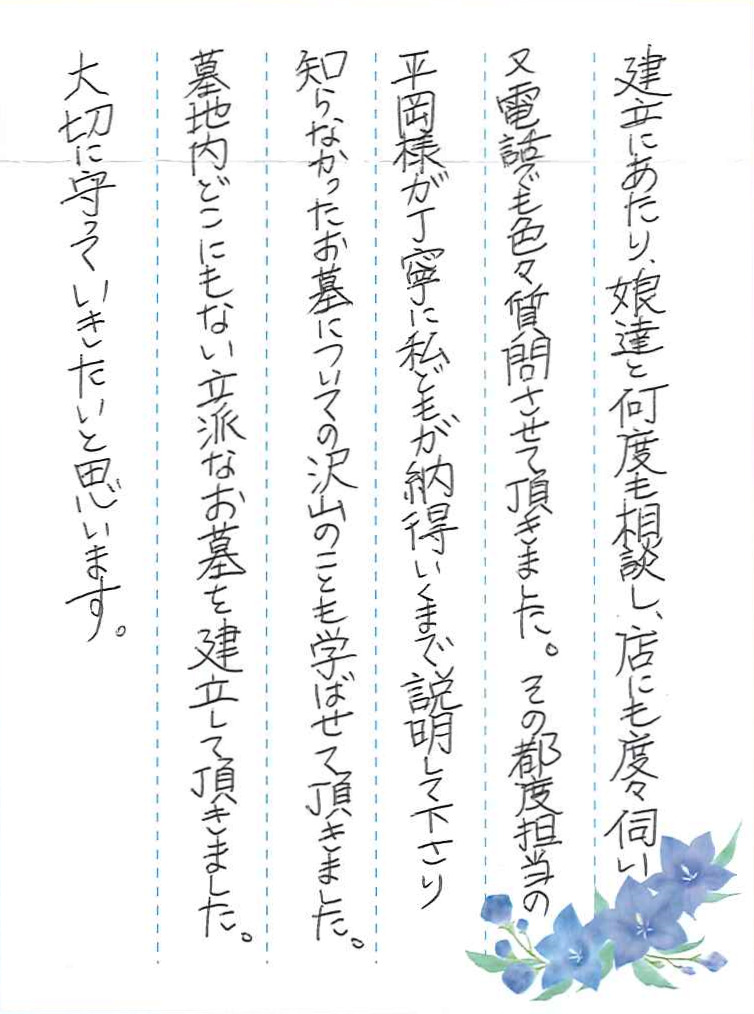 建立にあたり、娘達と何度も相談し、店にも度々伺い
又電話でも色々質問させて頂きました。その都度担当の
平岡様が丁寧に私どもが納得いくまで説明して下さり
知らなかったお墓についての沢山のことも学ばせて頂きました。
墓地内どこにもない立派なお墓を建立して頂きました。
大切に守っていきたいと思います。